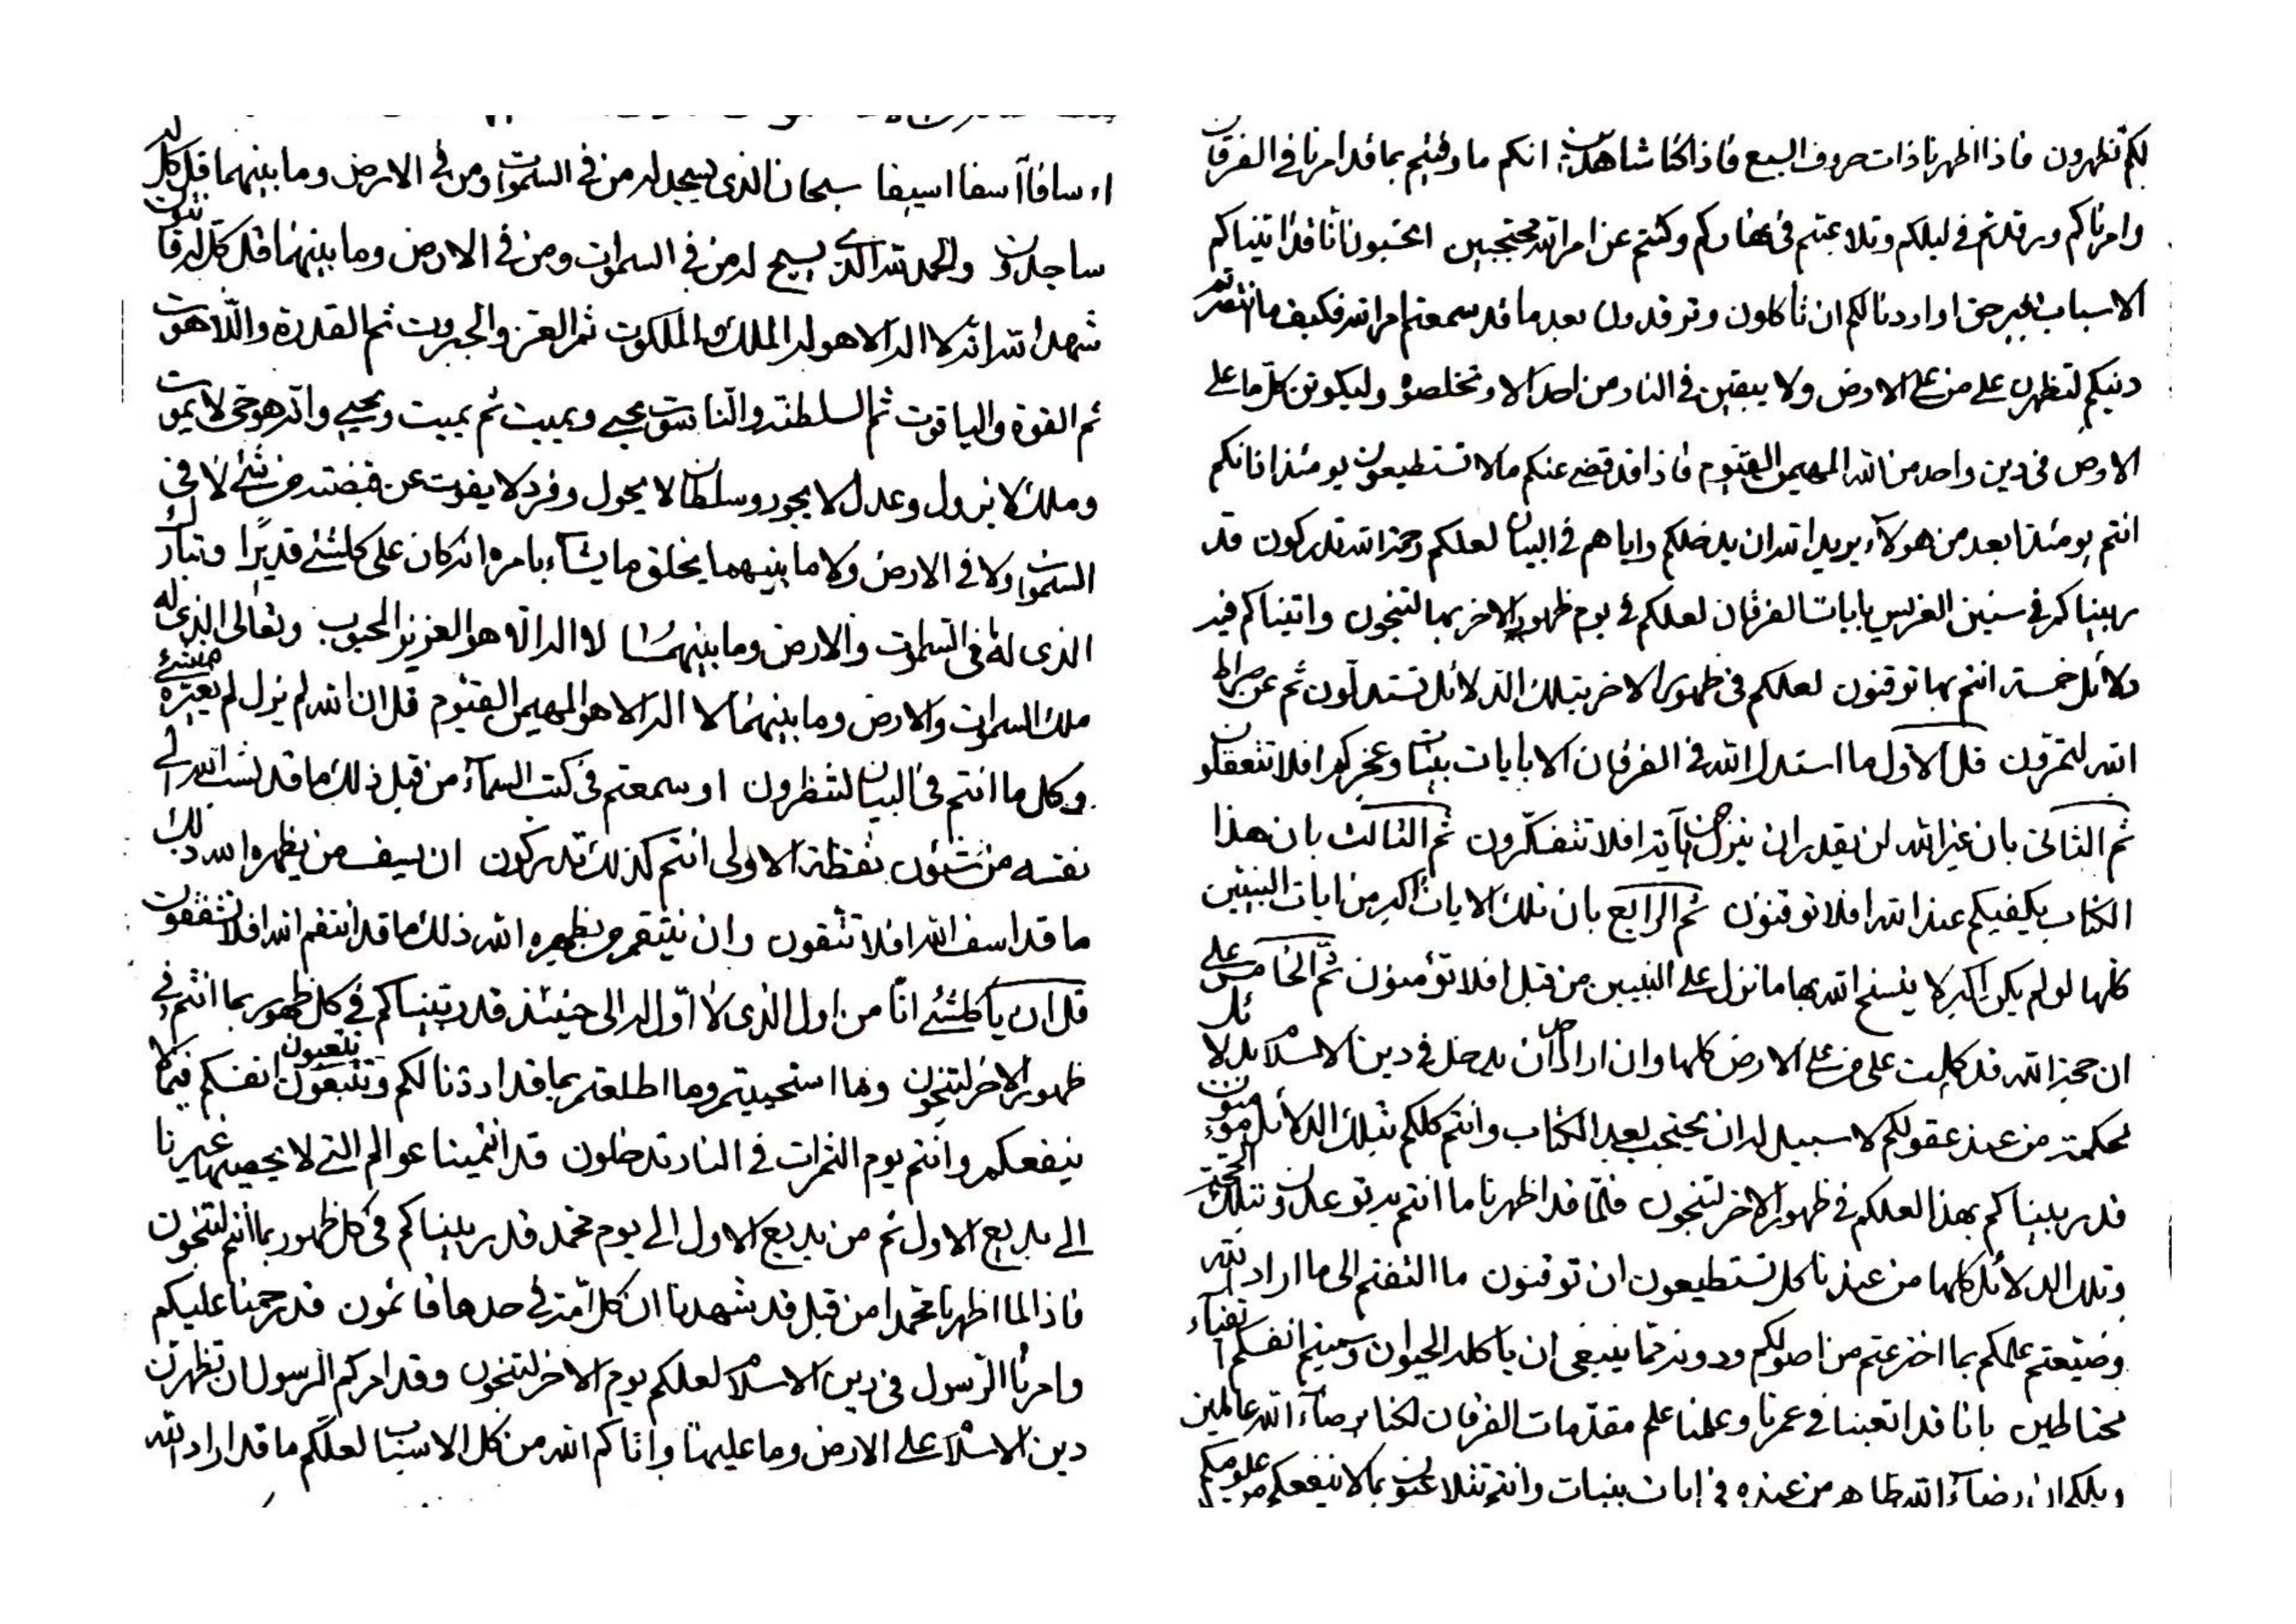 اوسافا آسفا اسيفا سبحان الذى يسجد له من فى السموات ومن فى الارض وما بينهما قل كل له
ساجدون والحمد لله الذى يسبح له من فى السموات ومن فى الارض وما بينهما قل كل له قانتون
شهد الله انه لا اله الا هو له الملك والملكوت ثم العز والجبروت ثم القدرة واللاهوت
ثم القوة والياقوت ثم السلطنة والناسوت يحيى ويميت ثم يميت ويحيى وانه هو حى لا يموت
وملك لا يزول وعدل لا يجور وسلطان لا يحول وفرد لا يفوت عن قبضته من شئ لا فى
السموات ولا فى الارض ولا ما بينهما يخلق ما يشاء بامره انه كان على كلشئ قديرًا وتبارك
الذى له ما فى السموات والارض وما بينهما لا اله الا هو العزيز المحبوب وتعالى الذى له
ملك السموات والارض وما بينهما لا اله الا هو المهيمن القيوم قل ان الله لم يزل لم يغيره من شئ
وكل ما انتم فى البيان لتنظرون او سمعتم فى كتب السماء من قبل ذلك ما قد نسب الله الى
نفسه من شئون نقطة الاولى انتم كذلك تدركون ان يسف من يظهره الله ذلك
ما قد اسف الله افلا تتقون وان ينتقم من يظهره الله ذلك ما قد انتقم الله افلا تشفقون
قل ان يا كلشئ انا من اول الذى لا اول له الى حينئذ قد ربيناكم فى كل ظهور بما انتم فى
ظهور الاخر لتنجون وما استحييتم وما اطلعتم بما قد اردنا لكم وتتبعون تتعبون انفسكم فيما لا
ينفعكم وانتم يوم الثمرات فى النار تدخلون قد انمينا عوالم التى لا يحصيها غيرنا
الى بديع الاول ثم من بديع الاول الى يوم محمد قد ربيناكم فى كل ظهور بما انتم لتنجون
فاذا لما اظهرنا محمدا من قبل قد شهدنا ان كل امة فى حدها قائمون قد رحمنا عليكم
وامرنا الرسول فى دين الاسلام لعلكم يوم الاخر لتنجون وقد امركم الرسول ان تظهرن
دين الاسلام على الارض وما عليها واتاكم الله من كل الاسباب لعلكم ما قد اراد الله
لكم تظهرون فاذا اظهرنا ذات حروف السبع فاذا كنا شاهدين انكم ما وفيتم بما قد امرنا فى الفرقان
وامرناكم ورقدتم فى ليلكم وتلاعبتم فى نهاركم وكنتم عن امر الله محتجبين اتحسبون انا قد اتيناكم
الاسباب بغير حق او اردنا لكم ان تاكلون وترقدون بعد ما قد سمعتم امر الله فكيف ما انتصرتم
دينكم لتظهرن على من على الارض ولا يبقين فى النار من احد الا وتخلصوه وليكونن كل ما على
الارض فى دين واحد من الله المهيمن القيوم فاذا قد قضى عنكم ما لا تستطيعون يومئذ انانكم
انتم يومئذ ابعد من هولاء يريد الله ان يدخلكم واياهم فى البيان لعلكم رحمة الله تدركون قد
ربيناكم فى سنين الغرس بايات الفرقان لعلكم فى يوم ظهور الاخر بها لتنجون واتيناكم فيه
دلائل خمسة انتم بها توقنون لعلكم فى ظهور الاخر بتلك الدلائل تستدلون ثم عن صراط
الله لتمرون قل الاول ما استدل الله فى الفرقان الا بايات بينات وعجز كل افلا تتعقلون
ثم الثانى بان غير الله لن يقدر ان ينزل من آية افلا تتفكرون ثم الثالث بان هذا
الكتاب يكفيكم عند الله افلا توقنون ثم الرابع بان تلك الايات اكبر من ايات النبيين
كلها لو لم يكن اكبر لا ينسخ الله بها ما نزل على النبيين من قبل افلا تؤمنون ثم الخامس على
ان حجة الله قد كملت على من على الارض كلها وان اراد احد ان يدخل فى دين الاسلام بدلائل
محكمة من عند عقولكم لا سبيل له ان يحتجب بعد الكتاب وانتم كلكم بتلك الدلائل موقنون
قد ربيناكم بهذا لعلكم فى ظهور الاخر لتنجون فلما قد اظهرنا ما انتم به توعدون وبتلك الحجة
وتلك الدلائل كلها من عندنا كل تستطيعون ان توقنون ما التفتم الى ما اراد الله
وضيعتم علمكم بما اخترعتم من اصولكم ودونه مما ينبغى ان ياكله الحيوان وسميتم انفسكم اتقياء
محتاطين بانا قد اتعبنا فى عمرنا وعلمنا علم مقدمات الفرقان لكنا برضاء الله عالمين
ويلكم ان رضاء الله ظاهر من عنده فى ايات بينات وانتم تتلاعبون بما لا ينفعكم من علومكم